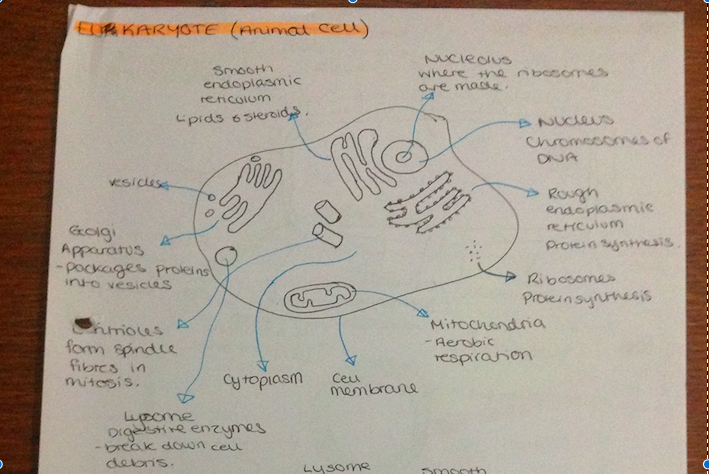 EUKARYOTE (Animal cell)
Smooth
endoplasmic
reticulum
Lipids & steroids.
Nucleolus
where the ribosomes
are made.
Nucleus
Chromosomes of
DNA
vesicles
Rough
endoplasmic
reticulum
Protein synthesis.
Golgi
Apparatus
- packages proteins
into vesicles
Ribosomes
Protein synthesis
Centrioles
form spindle
fibres in
mitosis.
Mitochondria
- Aerobic
respiration
Cytoplasm
Cell
membrane
Lysome
Digestive enzymes
- break down cell
debris.
Lysome
Smooth